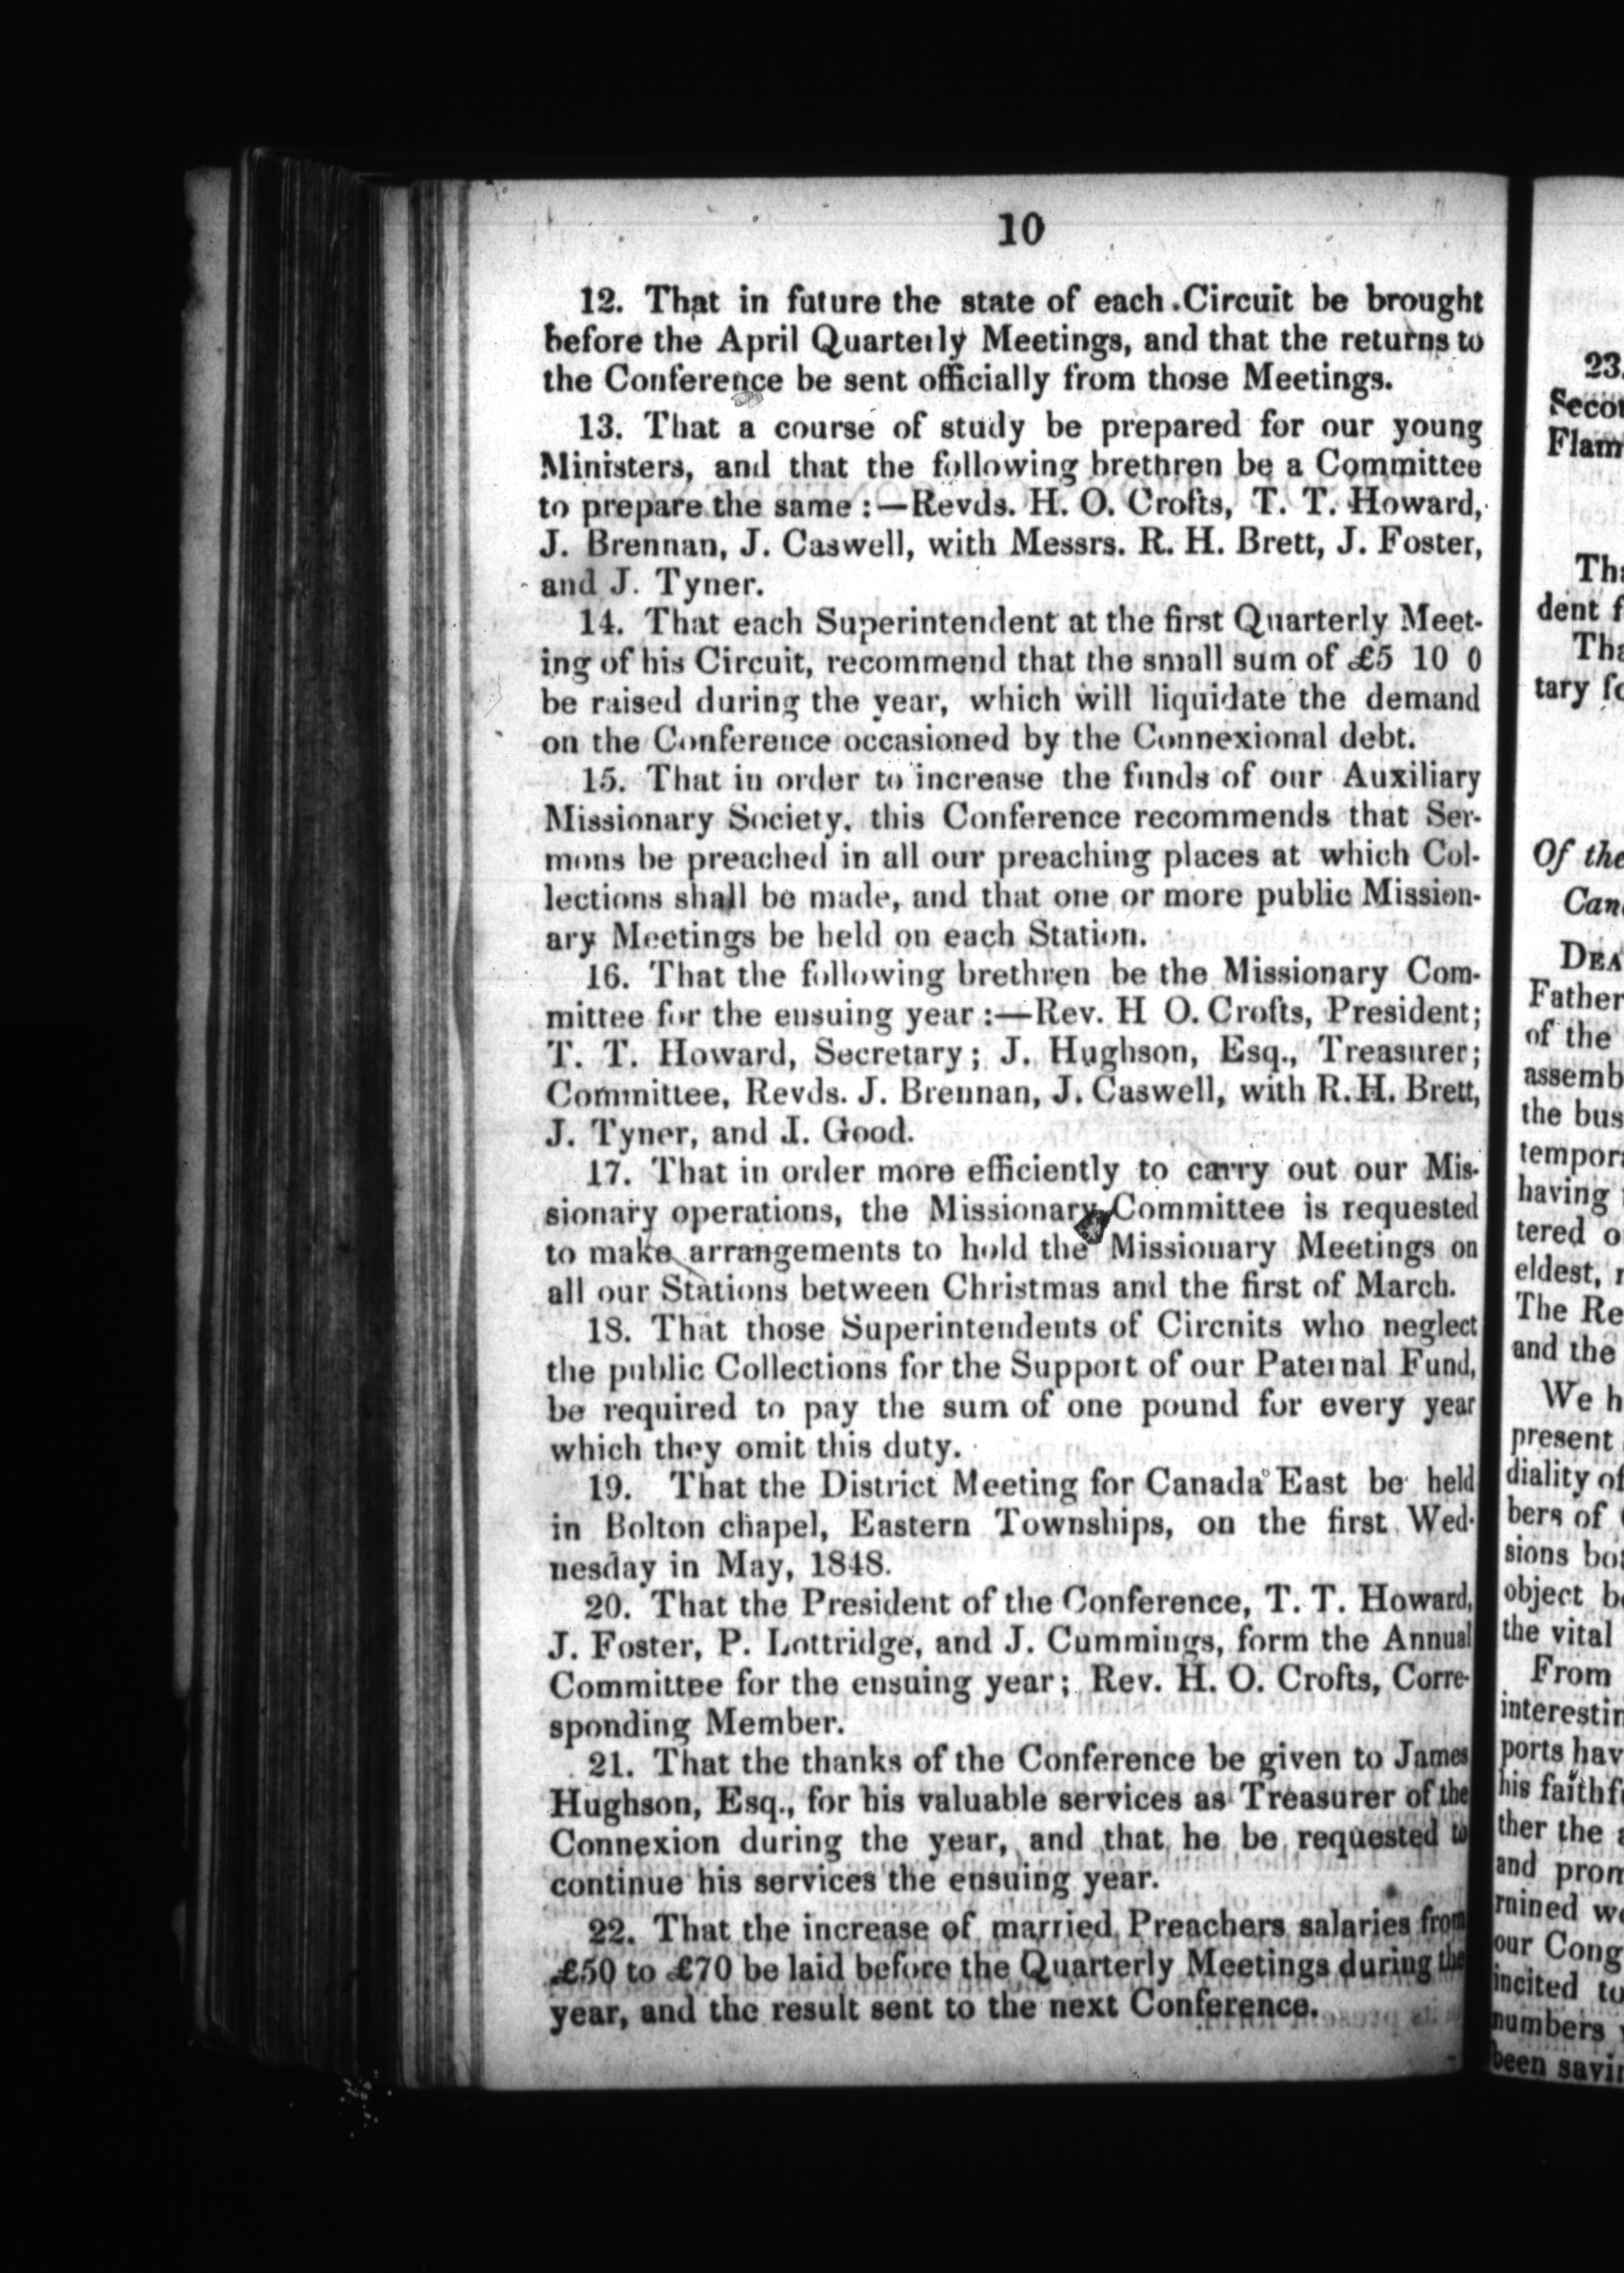 10
12. That in future the state of each Circuit be brought
before the April Quarterly Meetings, and that the returns to
the Conference be sent officially from those Meetings.
13. That a course of study be prepared for our young
Ministers, and that the following brethren be a Committee
to prepare the same :—Revds. H. O. Crofts, T. T. Howard,
J. Brennan, J. Caswell, with Messrs. R. H. Brett, J. Foster,
and J. Tyner.
14. That each Superintendent at the first Quarterly Meet-
ing of his Circuit, recommend that the small sum of £5 10 0
be raised during the year, which will liquidate the demand
on the Conference occasioned by the Connexional debt.
15. That in order to increase the funds of our Auxiliary
Missionary Society, this Conference recommends that Ser-
mons be preached in all our preaching places at which Col-
lections shall be made, and that one or more public Mission-
ary Meetings be held on each Station.
16. That the following brethren be the Missionary Com-
mittee for the ensuing year :—Rev. H O. Crofts, President;
T. T. Howard, Secretary; J. Hughson, Esq., Treasurer;
Committee, Revds. J. Brennan, J. Caswell, with R.H. Brett,
J. Tyner, and I. Good.
17. That in order more efficiently to carry out our Mis-
sionary operations, the Missionary Committee is requested
to make arrangements to hold the Missionary Meetings on
all our Stations between Christmas and the first of March.
18. That those Superintendents of Circnits who neglect
the public Collections for the Support of our Paternal Fund,
be required to pay the sum of one pound for every year
which they omit this duty.
19. That the District Meeting for Canada East be held
in Bolton chapel, Eastern Townships, on the first Wed-
nesday in May, 1848.
20. That the President of the Conference, T. T. Howard,
J. Foster, P. Lottridge, and J. Cummings, form the Annual
Committee for the ensuing year; Rev. H. O. Crofts, Corre-
sponding Member.
21. That the thanks of the Conference be given to James
Hughson, Esq., for his valuable services as Treasurer of the
Connexion during the year, and that he be requested to
continue his services the ensuing year.
22. That the increase of married Preachers salaries from
£50 to £70 be laid before the Quarterly Meetings during the
year, and the result sent to the next Conference.
23.
Secon
Flam
Tha
dent f
Tha
tary fo
Of the
Cana
DEA
Father
of the
assemb
the bus
tempor
having
tered o
eldest,
The Re
and the
We h
present
diality of
bers of
sions bo
object b
the vital
From
interestin
ports hav
his faithf
ther the
and prom
mined we
our Cong
incited to
numbers
been savin